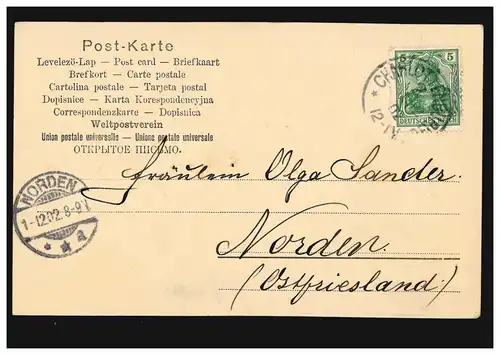 Post-Karte
Levelező-Lap — Post card — Briefkaart
Brefkort — Carte postale
Cartolina postale — Tarjeta postal
Dopisnice — Karta Korespondencyjna
Correspondenzkarte — Dopisnica
Weltpostverein
Union postale universelle — Unione postale universale
ОТКРЫТОЕ ПИСЬМО.
5
DEUTSCHES
NORDEN
1-12 02 8-9V
a
Fräulein Olga Sander.
Norden.
(Ostfriesland.)